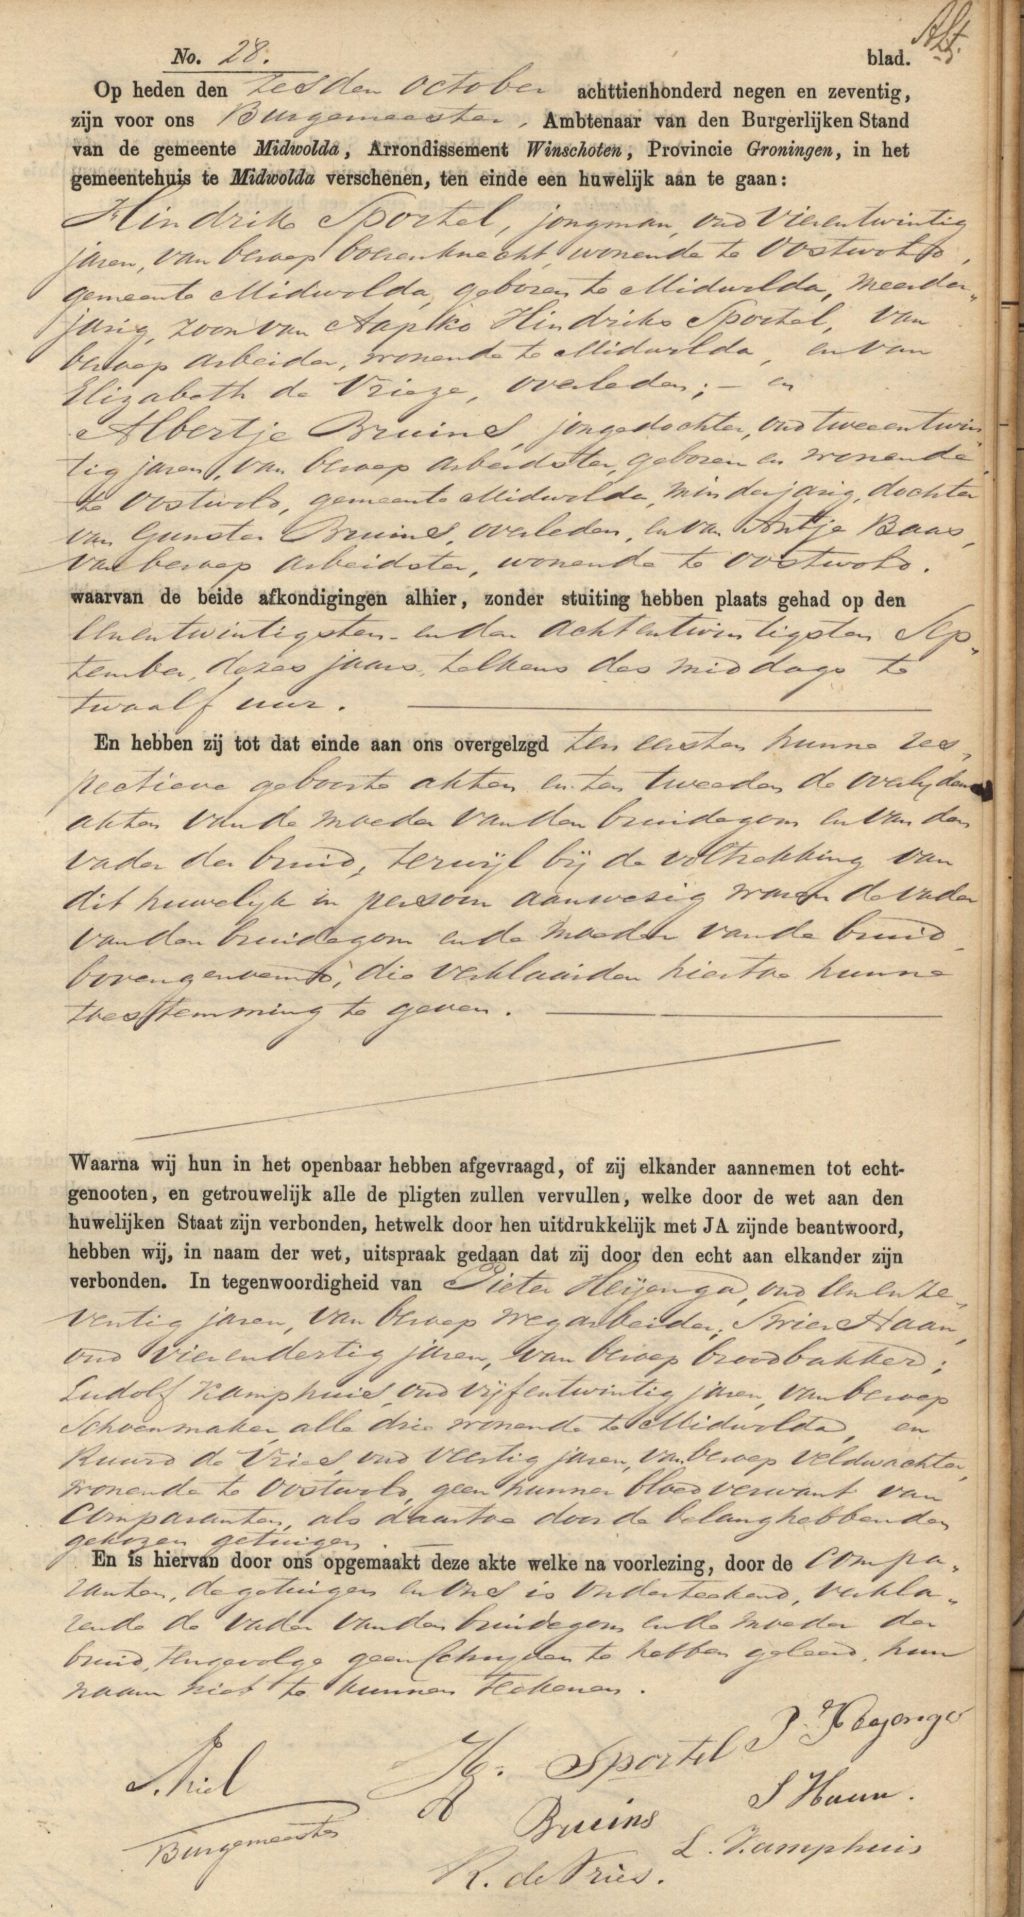 No. 28. blad.
Op heden den zesden October achttienhonderd negen en zeventig,
zijn voor ons Burgemeester, Ambtenaar van den Burgerlijken Stand
van de gemeente Midwolda, Arrondissement Winschoten, Provincie Groningen, in het
gemeentehuis te Midwolda verschenen, ten einde een huwelijk aan te gaan:
Hindrik Sportel, jongman, oud vierentwintig
jaren, van beroep boerenknecht, wonende te Oostwold,
gemeente Midwolda, geboren te Midwolda, meerder-
jarig, zoon van Aapko Hindriks Sportel, van
beroep arbeider, wonende te Midwolda, en van
Elizabeth de Vrieze, overleden; - en
Albertje Bruins, jongedochter, oud tweeentwin
tig jaren, van beroep arbeidster, geboren en wonende
te Oostwold, gemeente Midwolda, minderjarig, dochter
van Gunster Bruins, overleden, en van Antje Baas,
van beroep arbeidster, wonende te Oostwold.
waarvan de beide afkondigingen alhier, zonder stuiting hebben plaats gehad op den
eenentwintigsten en den achtentwintigsten Sep-
tember, dezes jaars, telkens des middags te
twaalf uur.
En hebben zij tot dat einde aan ons overgelzgd ten eersten hunne res-
pectieve geboorte akten en ten tweeden de overlijdens
akten van de moeder van den bruidegom en van den
vader der bruid, terwijl bij de voltrekking van
dit huwelijk in persoon aanwezig waren de vader
van den bruidegom en de moeder van de bruid
bovengenoemd, die verklaarden hiertoe hunne
toestemming te geven.
Waarna wij hun in het openbaar hebben afgevraagd, of zij elkander aannemen tot echt-
genooten, en getrouwelijk alle de pligten zullen vervullen, welke door de wet aan den
huwelijken Staat zijn verbonden, hetwelk door hen uitdrukkelijk met JA zijnde beantwoord,
hebben wij, in naam der wet, uitspraak gedaan dat zij door den echt aan elkander zijn
verbonden. In tegenwoordigheid van Pieter Heijenga, oud eenenze-
ventig jaren, van beroep wegarbeider; Haan,
oud vierendertig jaren, van beroep broodbakker;
Ludolf Kamphuis, oud vijfentwintig jaren, van beroep
Schoenmaker, alle drie wonende te Midwolda, en
Ruurd de Vries, oud veertig jaren, van beroep veldwachter,
wonende te Oostwold, geen hunner bloedverwant van
Comparanten, als daartoe door de belanghebbenden
gekozen getuigen.
En is hiervan door ons opgemaakt deze akte welke na voorlezing, door de Compa-
ranten, de getuigen en ons is onderteekend, verkla-
rende de vader van den bruidegom en de moeder der
bruid, tengevolge geen schrijven te hebben geleerd, hun
naam niet te kunnen teekenen.
H. Sportel P. Heijenga
A Bruins S Haan.
Burgemeester L. Kamphuis
R. de Vries.